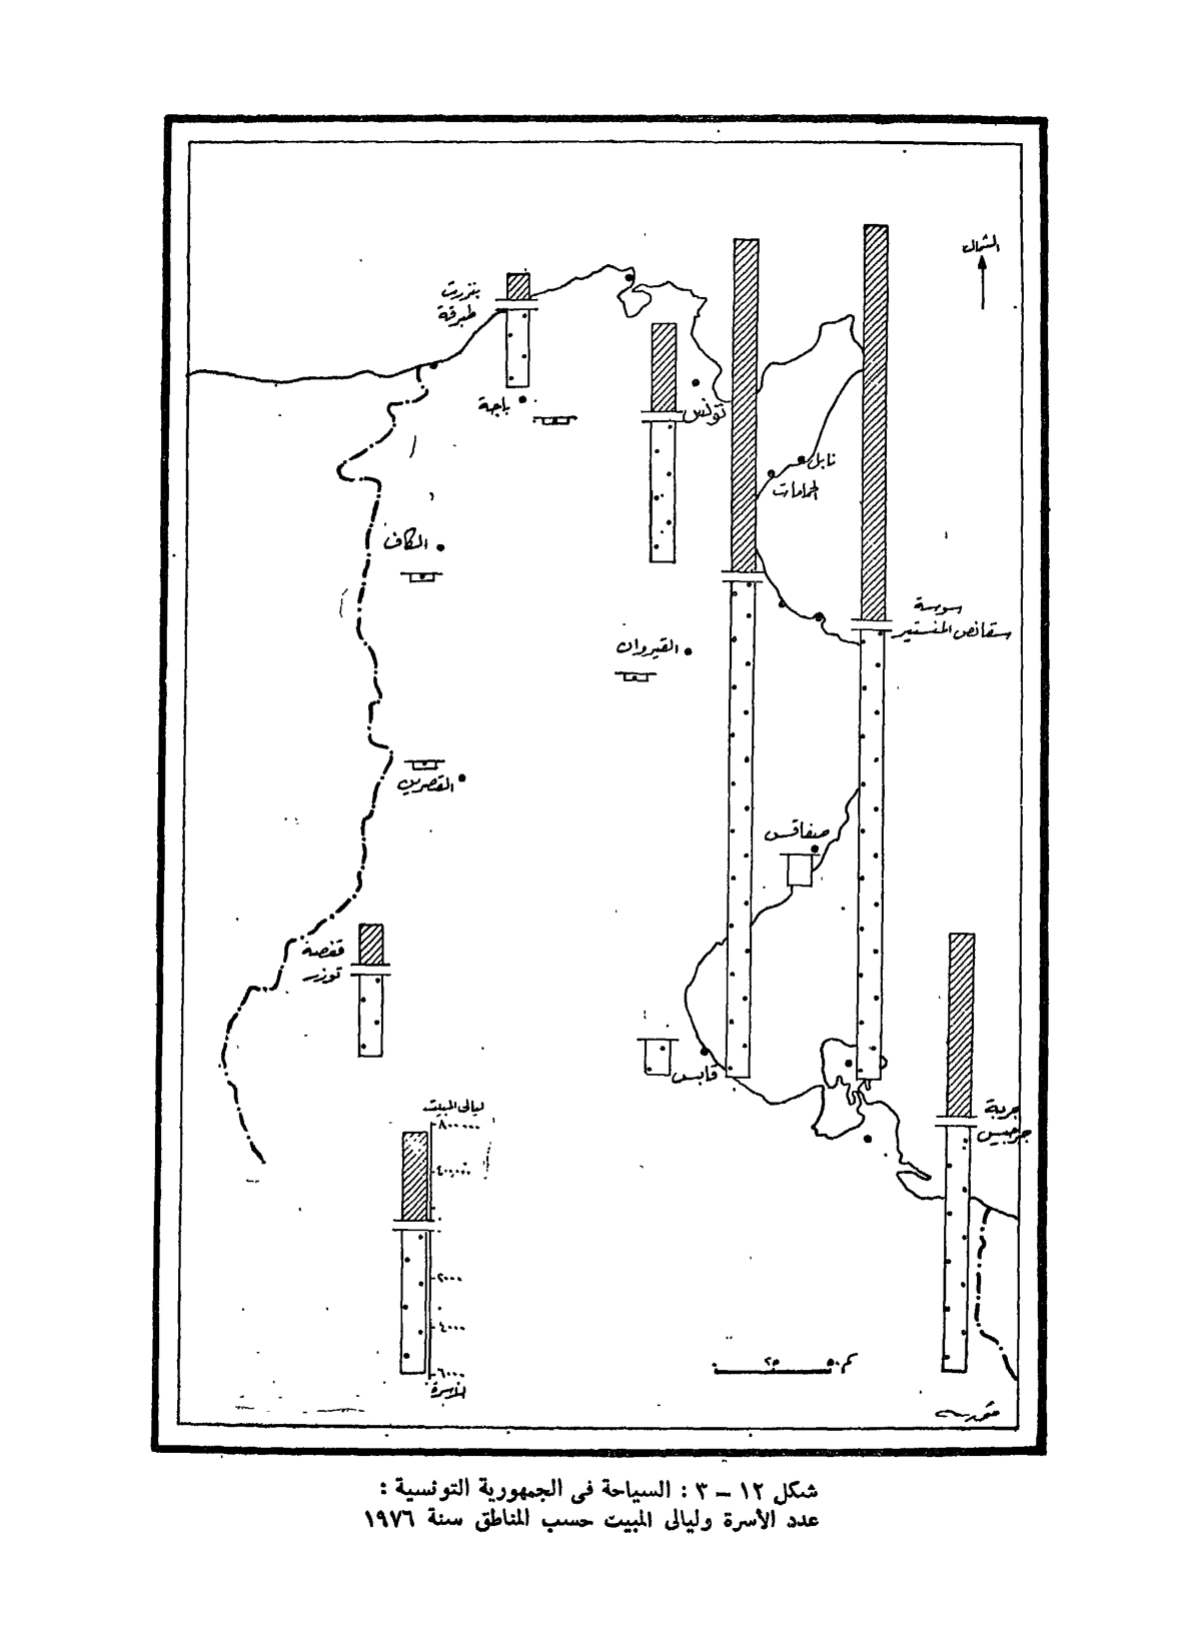 الشمال
بنزرت
طبرقة
باجة
تونس
نابل
الحمامات
الكاف
سوسة
سقانص المنستير
القيروان
القصرين
صفاقس
قفصة
توزر
قابس
جربة
جرجيس
ليالى المبيت
٨٠٠٠٠٠
٤٠٠٠٠٠
٢٠٠٠
٤٠٠٠
٦٠٠٠
الأسرة
٢٥ ٥٠ كم
شكل ١٢ – ٣ : السياحة فى الجمهورية التونسية :
عدد الأسرة وليالى المبيت حسب المناطق سنة ١٩٧٦